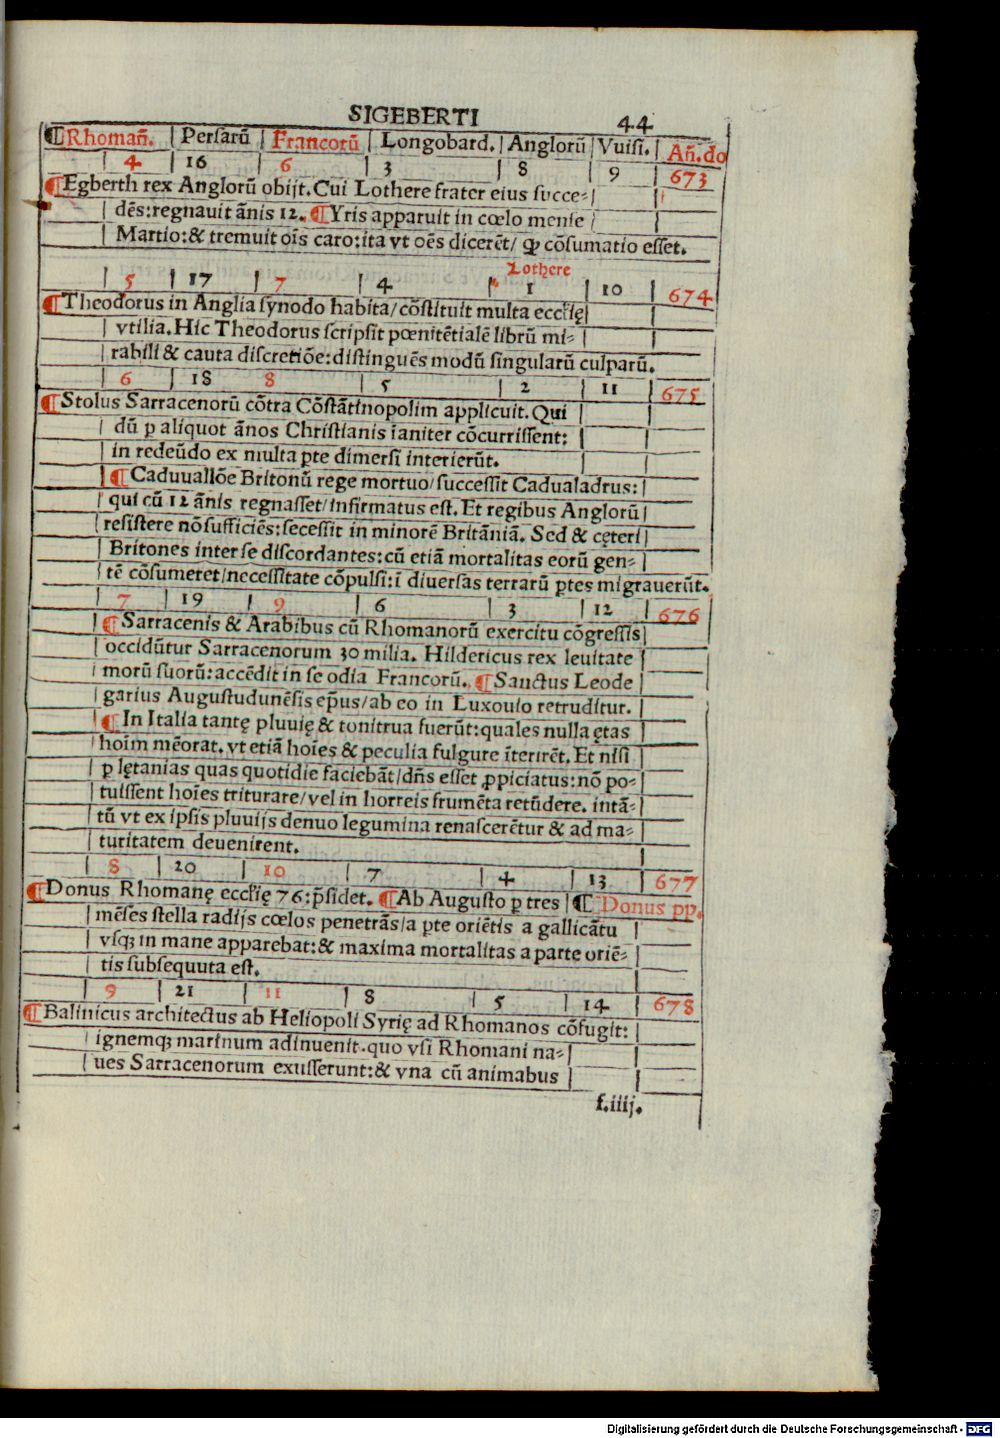 SIGEBERTI 44
¶Rhomañ. | Persarū | Francorū | Longobard. | Anglorū | Vuisi. | Añ.do
4 | 16 | 6 | 3 | 8 | 9 | 673
¶Egberth rex Anglorū obijt. Cui Lothere frater eius succe-
dēs: regnauit ānis 12. ¶Yris apparuit in cœlo mense
Martio: & tremuit oīs caro: ita vt oēs dicerēt/ ꝙ cōsumatio esset.
Lothere
5 | 17 | 7 | 4 | 1 | 10 | 674
¶Theodorus in Anglia synodo habita/ cōstituit multa eccl̄ię
vtilia. Hic Theodorus scripsit pœnitētialē librū mi-
rabili & cauta discretiōe: distinguēs modū singularū culparū.
6 | 18 | 8 | 5 | 2 | 11 | 675
¶Stolus Sarracenorū cōtra Cōstātinopolim applicuit. Qui
dū ꝑ aliquot ānos Christianis īaniter cōcurrissent:
in redeūdo ex multa ꝑte dimersi interierūt.
¶Caduuallōe Britonū rege mortuo/ successit Cadualadrus:
qui cū 12 ānis regnasset/ infirmatus est. Et regibus Anglorū
resistere nō sufficiēs: secessit in minorē Britāniā. Sed & cęteri
Britones inter se discordantes: cū etiā mortalitas eorū gen-
tē cōsumeret/ necessitate cōpulsi: ī diuersas terrarū ꝑtes migrauerūt.
7 | 19 | 9 | 6 | 3 | 12 | 676
¶Sarracenis & Arabibus cū Rhomanorū exercitu cōgressis
occidūtur Sarracenorum 30 milia. Hildericus rex leuitate
morū suorū: accēdit in se odia Francorū. ¶Sanctus Leode
garius Augustudunēsis ep̄us/ ab eo in Luxouio retruditur.
¶In Italia tantę pluuię & tonitrua fuerūt: quales nulla ętas
hoīm mēorat. vt etiā hoīes & peculia fulgure īterirēt. Et nisi
ꝑ lętanias quas quotidie faciebāt/ dn̄s esset ꝓpiciatus: nō po-
tuissent hoīes triturare/ vel in horreis frumēta retūdere. intā-
tū vt ex ipsis pluuijs denuo legumina renascerētur & ad ma-
turitatem deuenirent.
8 | 20 | 10 | 7 | 4 | 13 | 677
¶Donus Rhomanę eccl̄ię 76: p̄sidet. ¶Ab Augusto ꝑ tres | ¶Donus pp.
mēses stella radijs cœlos penetrās/ a ꝑte oriētis a gallicātu
vsqꝫ in mane apparebat: & maxima mortalitas a parte oriē-
tis subsequuta est.
9 | 21 | 11 | 8 | 5 | 14 | 678
¶Balinicus architectus ab Heliopoli Syrię ad Rhomanos cōfugit:
ignemqꝫ marinum adinuenit. quo vsi Rhomani na-
ues Sarracenorum exusserunt: & vna cū animabus
f.iiij.
Digitalisierung gefördert durch die Deutsche Forschungsgemeinschaft - DFG